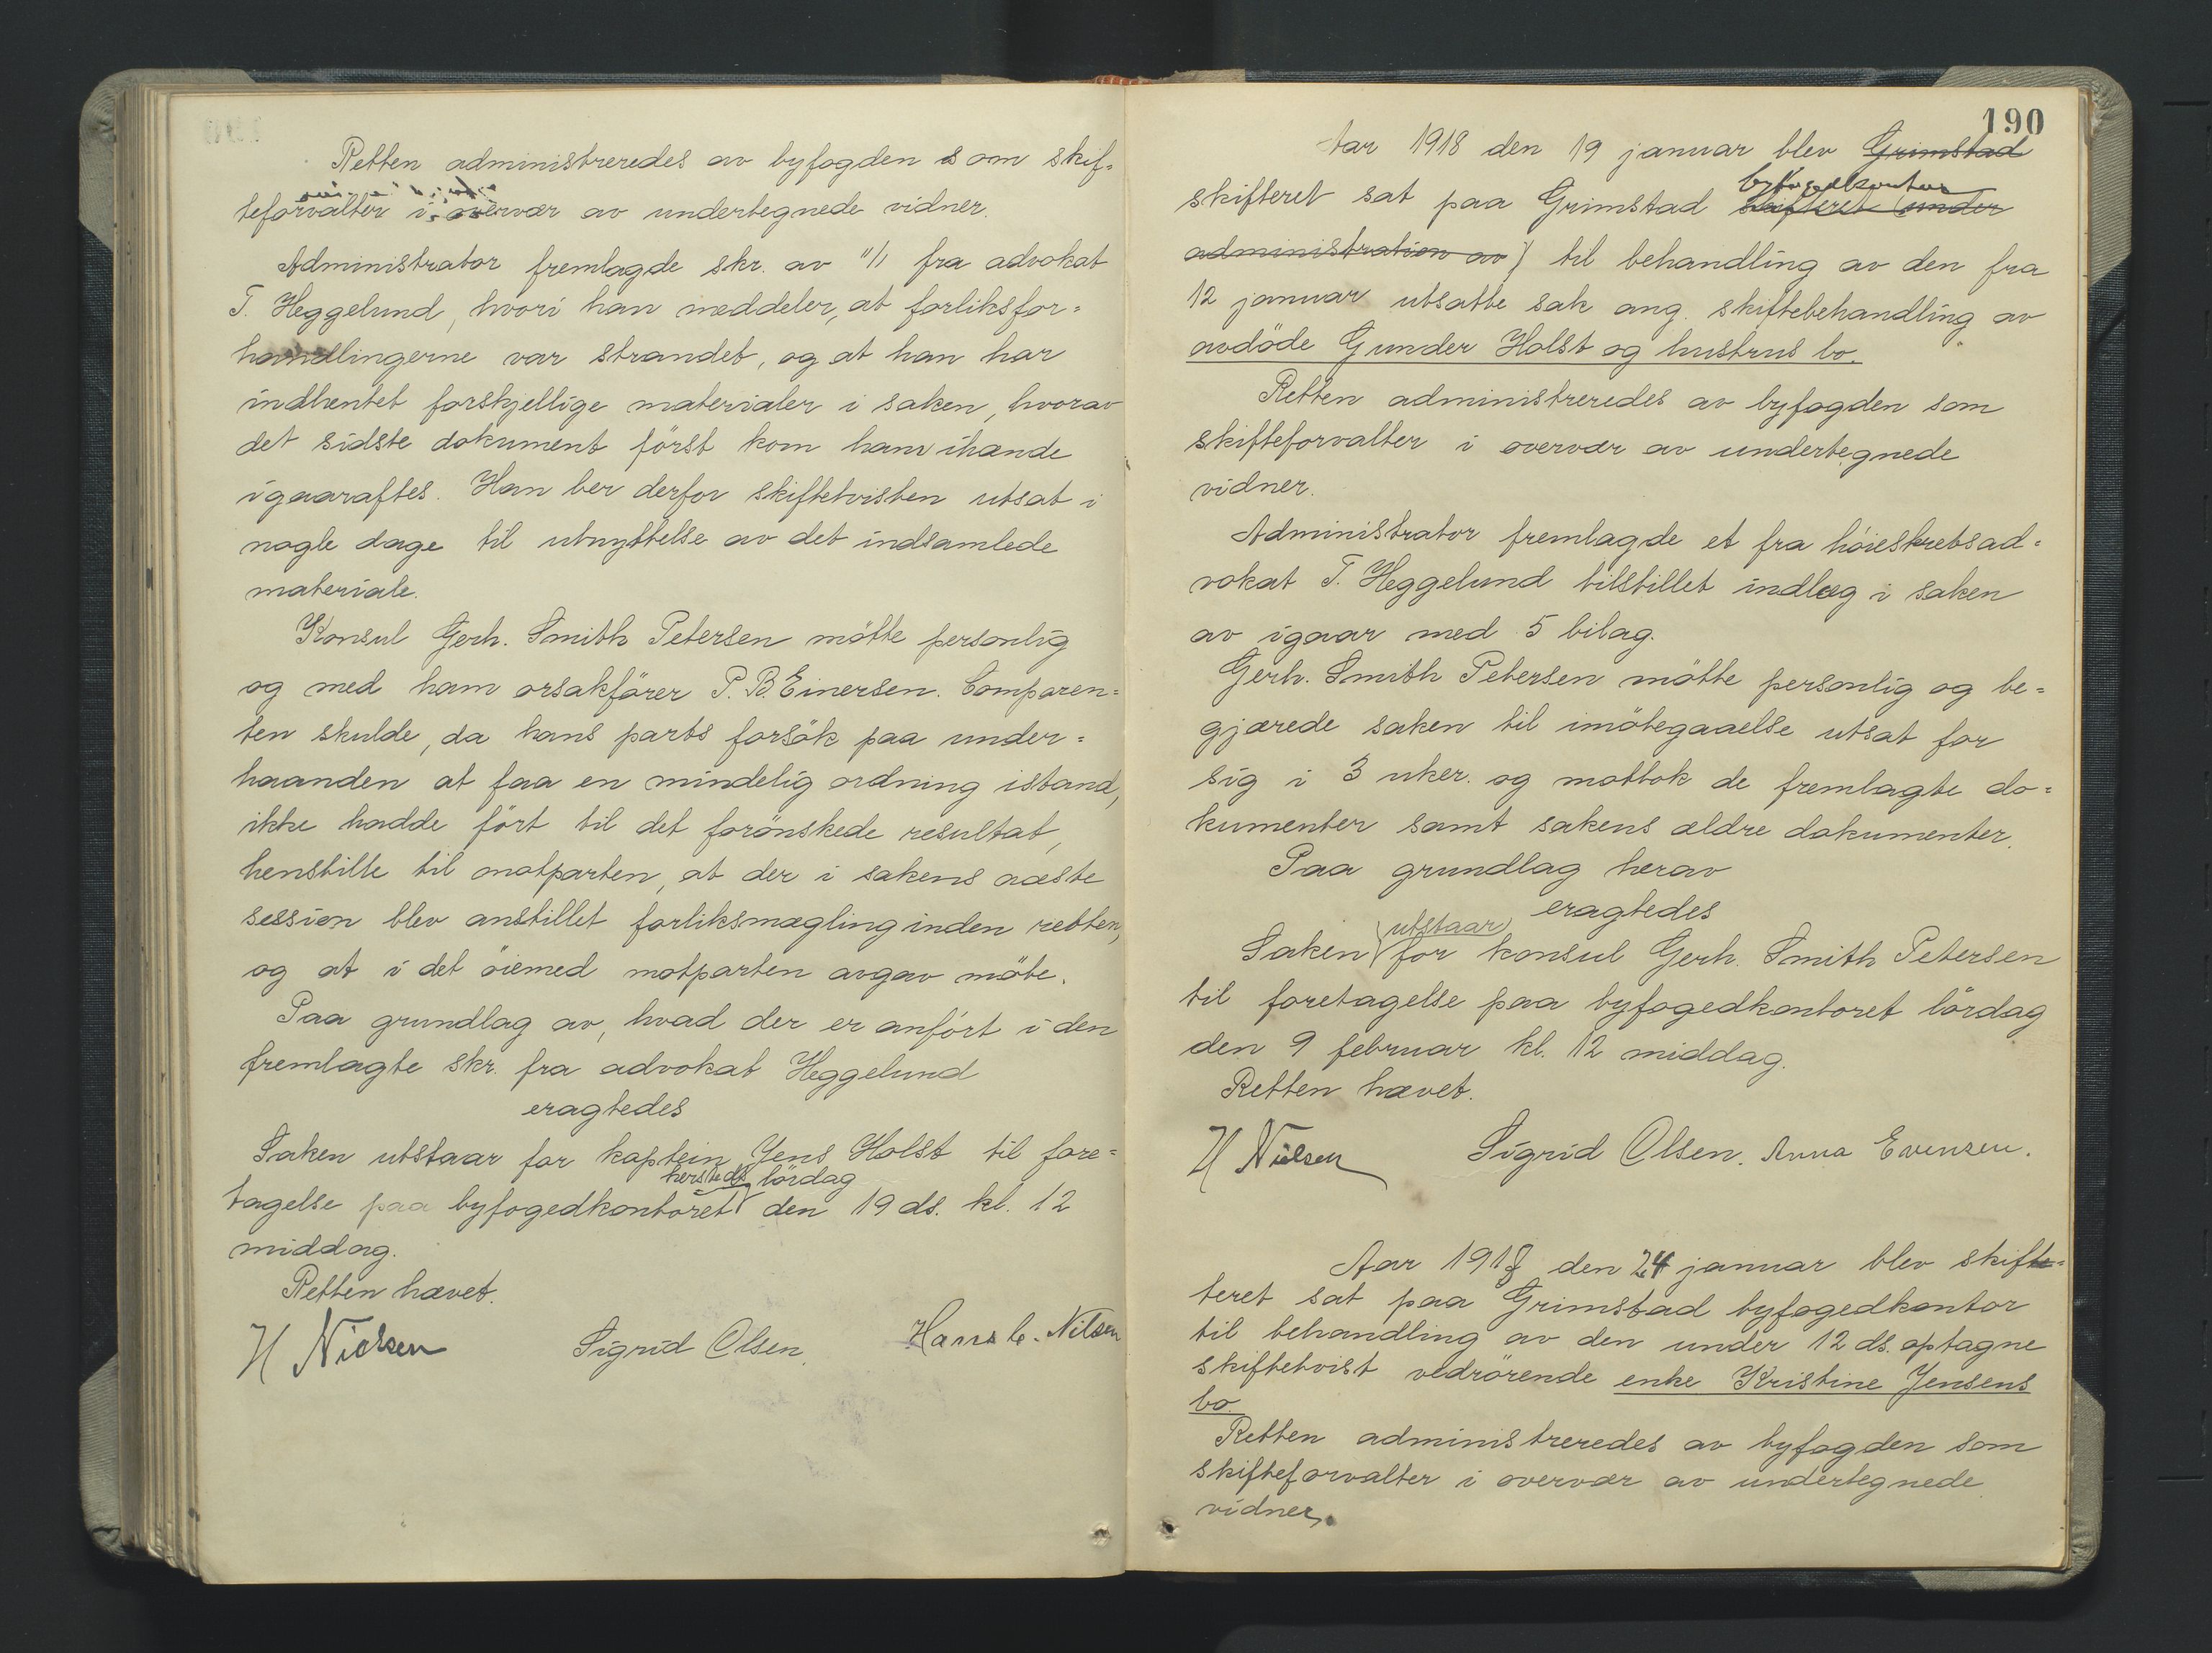 Retten administreredes av byfogden som skif=
teforvalter i overvær av undertegnede vidner.
Administrator fremlagde skr. av 11/1 fra advokat
T. Heggelund, hvori han meddeler, at forliksfor=
handlingerne var strandet, og at han har
indhentet forskjellige materialer i saken, hvorav
det sidste dokument först kom ham ihænde
igaaraftes. Han ber derfor skiftetvisten utsat i
nogle dage til utnyttelse av det indsamlede
materiale.
Konsul Gerh. Smith Petersen mötte personlig
og med ham orsakförer P. B. Einersen. Comparen=
ten skulde, da hans parts forsök paa under=
haanden at faa en mindelig ordning istand,
ikke hadde fört til det forönskede resultat,
henstille til motparten, at der i sakens næste
session blev anstillet forliksmægling inden retten,
og at i det öiemed motparten avgav möte.
Paa grundlag av, hvad der er anfört i den
fremlagte skr. fra advokat Heggelund
eragtedes
Saken utstaar for kaptein Jens Holst til fore=
hersteds lördag
tagelse paa byfogedkontoret den 19 ds. kl. 12
middag.
Retten hævet.
H Nielsen Sigrid Olsen, Hans C. Nilsen
190
Aar 1918 den 19 januar blev Grimstad
byfogedkontor
skifteret sat paa Grimstad skifteret under
administration av } til behandling av den fra
12 januar utsatte sak ang. skiftebehandling av
avdöde Gunder Holst og hustrus bo.
Retten administreredes av byfogden som
skifteforvalter i overvær av undertegnede
vidner.
Administrator fremlagde et fra höiestretsad=
vokat T. Heggelund tilstillet indlæg i saken
av igaar med 5 bilag.
Gerh. Smith Petersen mötte personlig og be=
gjærede saken til imötegaaelse utsat for
sig i 3 uker. og mottok de fremlagte do=
kumenter samt sakens ældre dokumenter.
Paa grundlag herav
eragtedes
utstaar
Saken for konsul Gerh. Smith Petersen
til foretagelse paa byfogedkontoret lördag
den 9 februar kl. 12 middag.
Retten hævet.
H Nielsen Sigrid Olsen. Anna Evensen.
Aar 1918 den 24 januar blev skifte=
teret sat paa Grimstad byfogedkontor
til behandling av den under 12 ds. optagne
skiftetvist vedrörende enke Kristine Jensens
bo.
Retten administreredes av byfogden som
skifteforvalter i overvær av undertegnede
vidner.